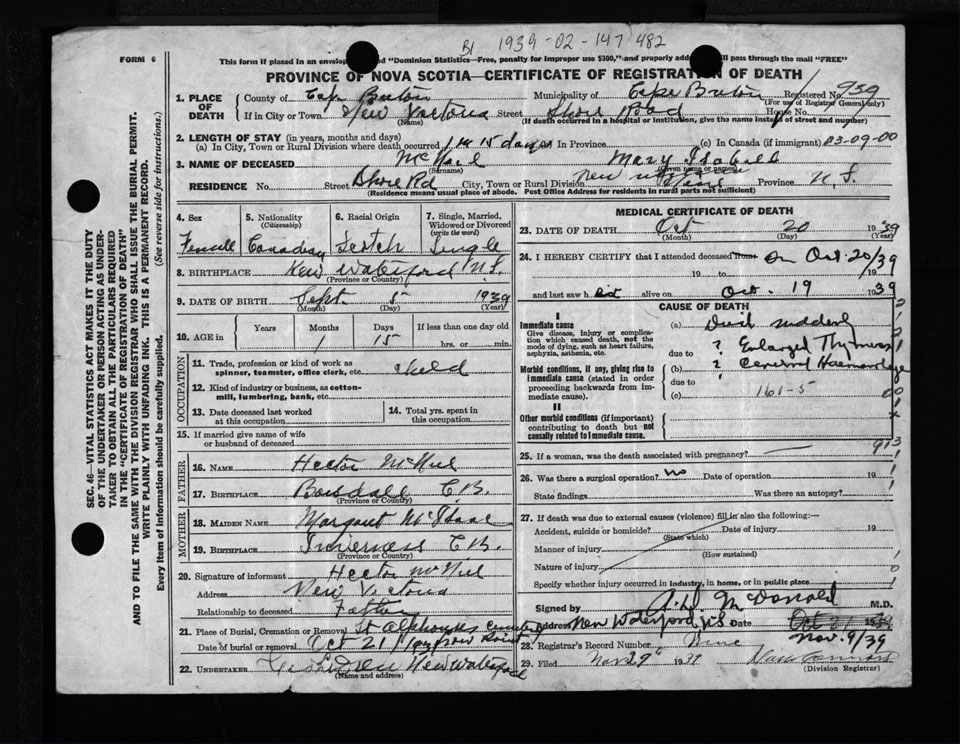 B1 1939-02-147482
FORM 6
This form if placed in an envelope "Dominion Statistics—Free, penalty for improper use $300," and properly will pass through the mail "FREE"
PROVINCE OF NOVA SCOTIA—CERTIFICATE OF REGISTRATION OF DEATH
1. PLACE OF DEATH County of Cape Breton Municipality of Cape Breton Registered No. 939
(For use of Registrar General only)
If in City or Town New Victoria Street Shore Road House No.
(Name) (If death occurred in a hospital or institution, give the name instead of street and number)
2. LENGTH OF STAY (in years, months and days)
(a) In City, Town or Rural Division where death occurred 1 M 15 days (c) In Canada (if immigrant) 03-09-00
3. NAME OF DECEASED McNeil Mary Isabell
(Surname) (Given name or names)
RESIDENCE No. Street Shore Rd City, Town or Rural Division New Province N.S.
(Residence means usual place of abode. Post Office Address for residents in rural parts not sufficient)
4. Sex 5. Nationality (Citizenship) 6. Racial Origin 7. Single, Married, Widowed or Divorced (write the word)
Female Canadian Scotch Single
8. BIRTHPLACE New Waterford N.S.
(Province or Country)
9. DATE OF BIRTH Sept. 5 1939
(Month) (Day) (Year)
10. AGE in Years Months Days If less than one day old
1 15 hrs. or min.
OCCUPATION
11. Trade, profession or kind of work as spinner, teamster, office clerk, etc. child
12. Kind of industry or business, as cotton-mill, lumbering, bank, etc.
13. Date deceased last worked at this occupation 14. Total yrs. spent in this occupation
15. If married give name of wife or husband of deceased
FATHER
16. NAME Hector McNeil
17. BIRTHPLACE Boisdale C.B.
(Province or Country)
MOTHER
18. MAIDEN NAME Margaret McIsaac
19. BIRTHPLACE Inverness C.B.
(Province or Country)
20. Signature of informant Hector McNeil
Address New Victoria
Relationship to deceased Father
21. Place of Burial, Cremation or Removal St Alphonsus Cemetery
Date of burial or removal Oct 21/1939
22. UNDERTAKER New Waterford
(Name and address)
MEDICAL CERTIFICATE OF DEATH
23. DATE OF DEATH Oct 20 1939
(Month) (Day) (Year)
24. I HEREBY CERTIFY that I attended deceased from On Oct. 20/39
19 to 19
and last saw h alive on Oct. 19 1939
CAUSE OF DEATH
I
Immediate cause (a) Died suddenly
Give disease, injury or complication which caused death, not the mode of dying, such as heart failure, asphyxia, asthenia, etc.
due to ? Enlarged Thymus
Morbid conditions, if any, giving rise to immediate cause (stated in order proceeding backwards from immediate cause).
(b) ? Cerebral Haemorrhage
due to
(c) 161-5
II
Other morbid conditions (if important) contributing to death but not causally related to immediate cause.
25. If a woman, was the death associated with pregnancy?
26. Was there a surgical operation? no Date of operation 19
State findings Was there an autopsy?
27. If death was due to external causes (violence) fill in also the following:—
Accident, suicide or homicide? Date of injury 19
(State which)
Manner of injury
(How sustained)
Nature of injury
Specify whether injury occurred in industry, in home, or in public place
Signed by A. McDonald M.D.
Address New Waterford N.S. Date Oct 21 19
28. Registrar's Record Number Nine Nov. 9/39
29. Filed 1939
(Division Registrar)
SEC. 46—VITAL STATISTICS ACT MAKES IT THE DUTY OF THE UNDERTAKER OR PERSON ACTING AS UNDERTAKER TO OBTAIN ALL THE PARTICULARS REQUIRED IN THE "CERTIFICATE OF DEATH"
AND TO FILE THE SAME WITH THE DIVISION REGISTRAR WHO SHALL ISSUE THE BURIAL PERMIT.
WRITE PLAINLY WITH UNFADING INK. THIS IS A PERMANENT RECORD.
Every item of information should be carefully supplied. (See reverse side for instructions.)